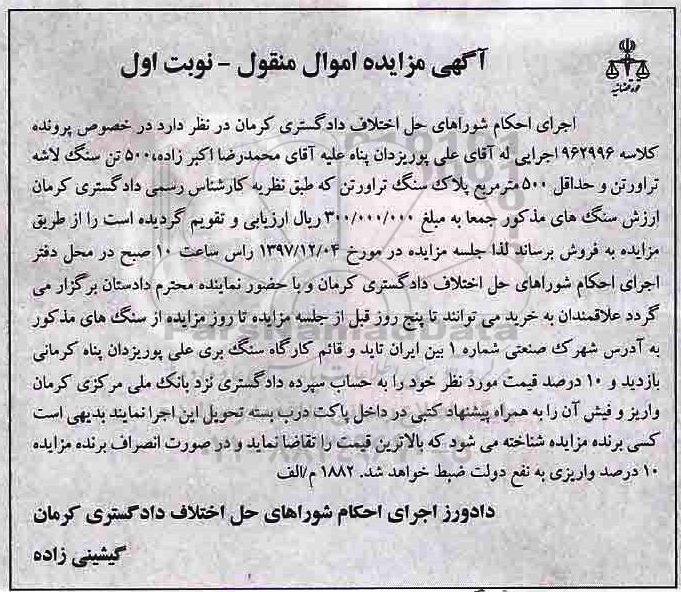 آگهی مزایده اموال منقول - نوبت اول
اجرای احکام شوراهای حل اختلاف دادگستری کرمان در نظر دارد در خصوص پرونده
کلاسه ۹۶۲۹۹۶ اجرایی له آقای علی پوریزدان پناه علیه آقای محمدرضا اکبر زاده،۵۰۰ تن سنگ لاشه
تراورتن و حداقل ۵۰۰ مترمربع پلاک سنگ تراورتن که طبق نظریه کارشناس رسمی دادگستری کرمان
ارزش سنگ های مذکور جمعا به مبلغ ۳۰۰/۰۰۰/۰۰۰ ریال ارزیابی و تقویم گردیده است را از طریق
مزایده به فروش برساند لذا جلسه مزایده در مورخ ۱۳۹۷/۱۲/۰۴ راس ساعت ۱۰ صبح در محل دفتر
اجرای احکام شوراهای حل اختلاف دادگستری کرمان و با حضور نماینده محترم دادستان برگزار می
گردد علاقمندان به خرید می توانند تا پنج روز قبل از جلسه مزایده تا روز مزایده از سنگ های مذکور
به آدرس شهرک صنعتی شماره ۱ بین ایران تاید و قائم کارگاه سنگ بری علی پوریزدان پناه کرمانی
بازدید و ۱۰ درصد قیمت مورد نظر خود را به حساب سپرده دادگستری نزد بانک ملی مرکزی کرمان
واریز و فیش آن را به همراه پیشنهاد کتبی در داخل پاکت درب بسته تحویل این اجرا نمایند بدیهی است
کسی برنده مزایده شناخته می شود که بالاترین قیمت را تقاضا نماید و در صورت انصراف برنده مزایده
۱۰ درصد واریزی به نفع دولت ضبط خواهد شد. ۱۸۸۲ م/الف
دادورز اجرای احکام شوراهای حل اختلاف دادگستری کرمان
گیشینی زاده